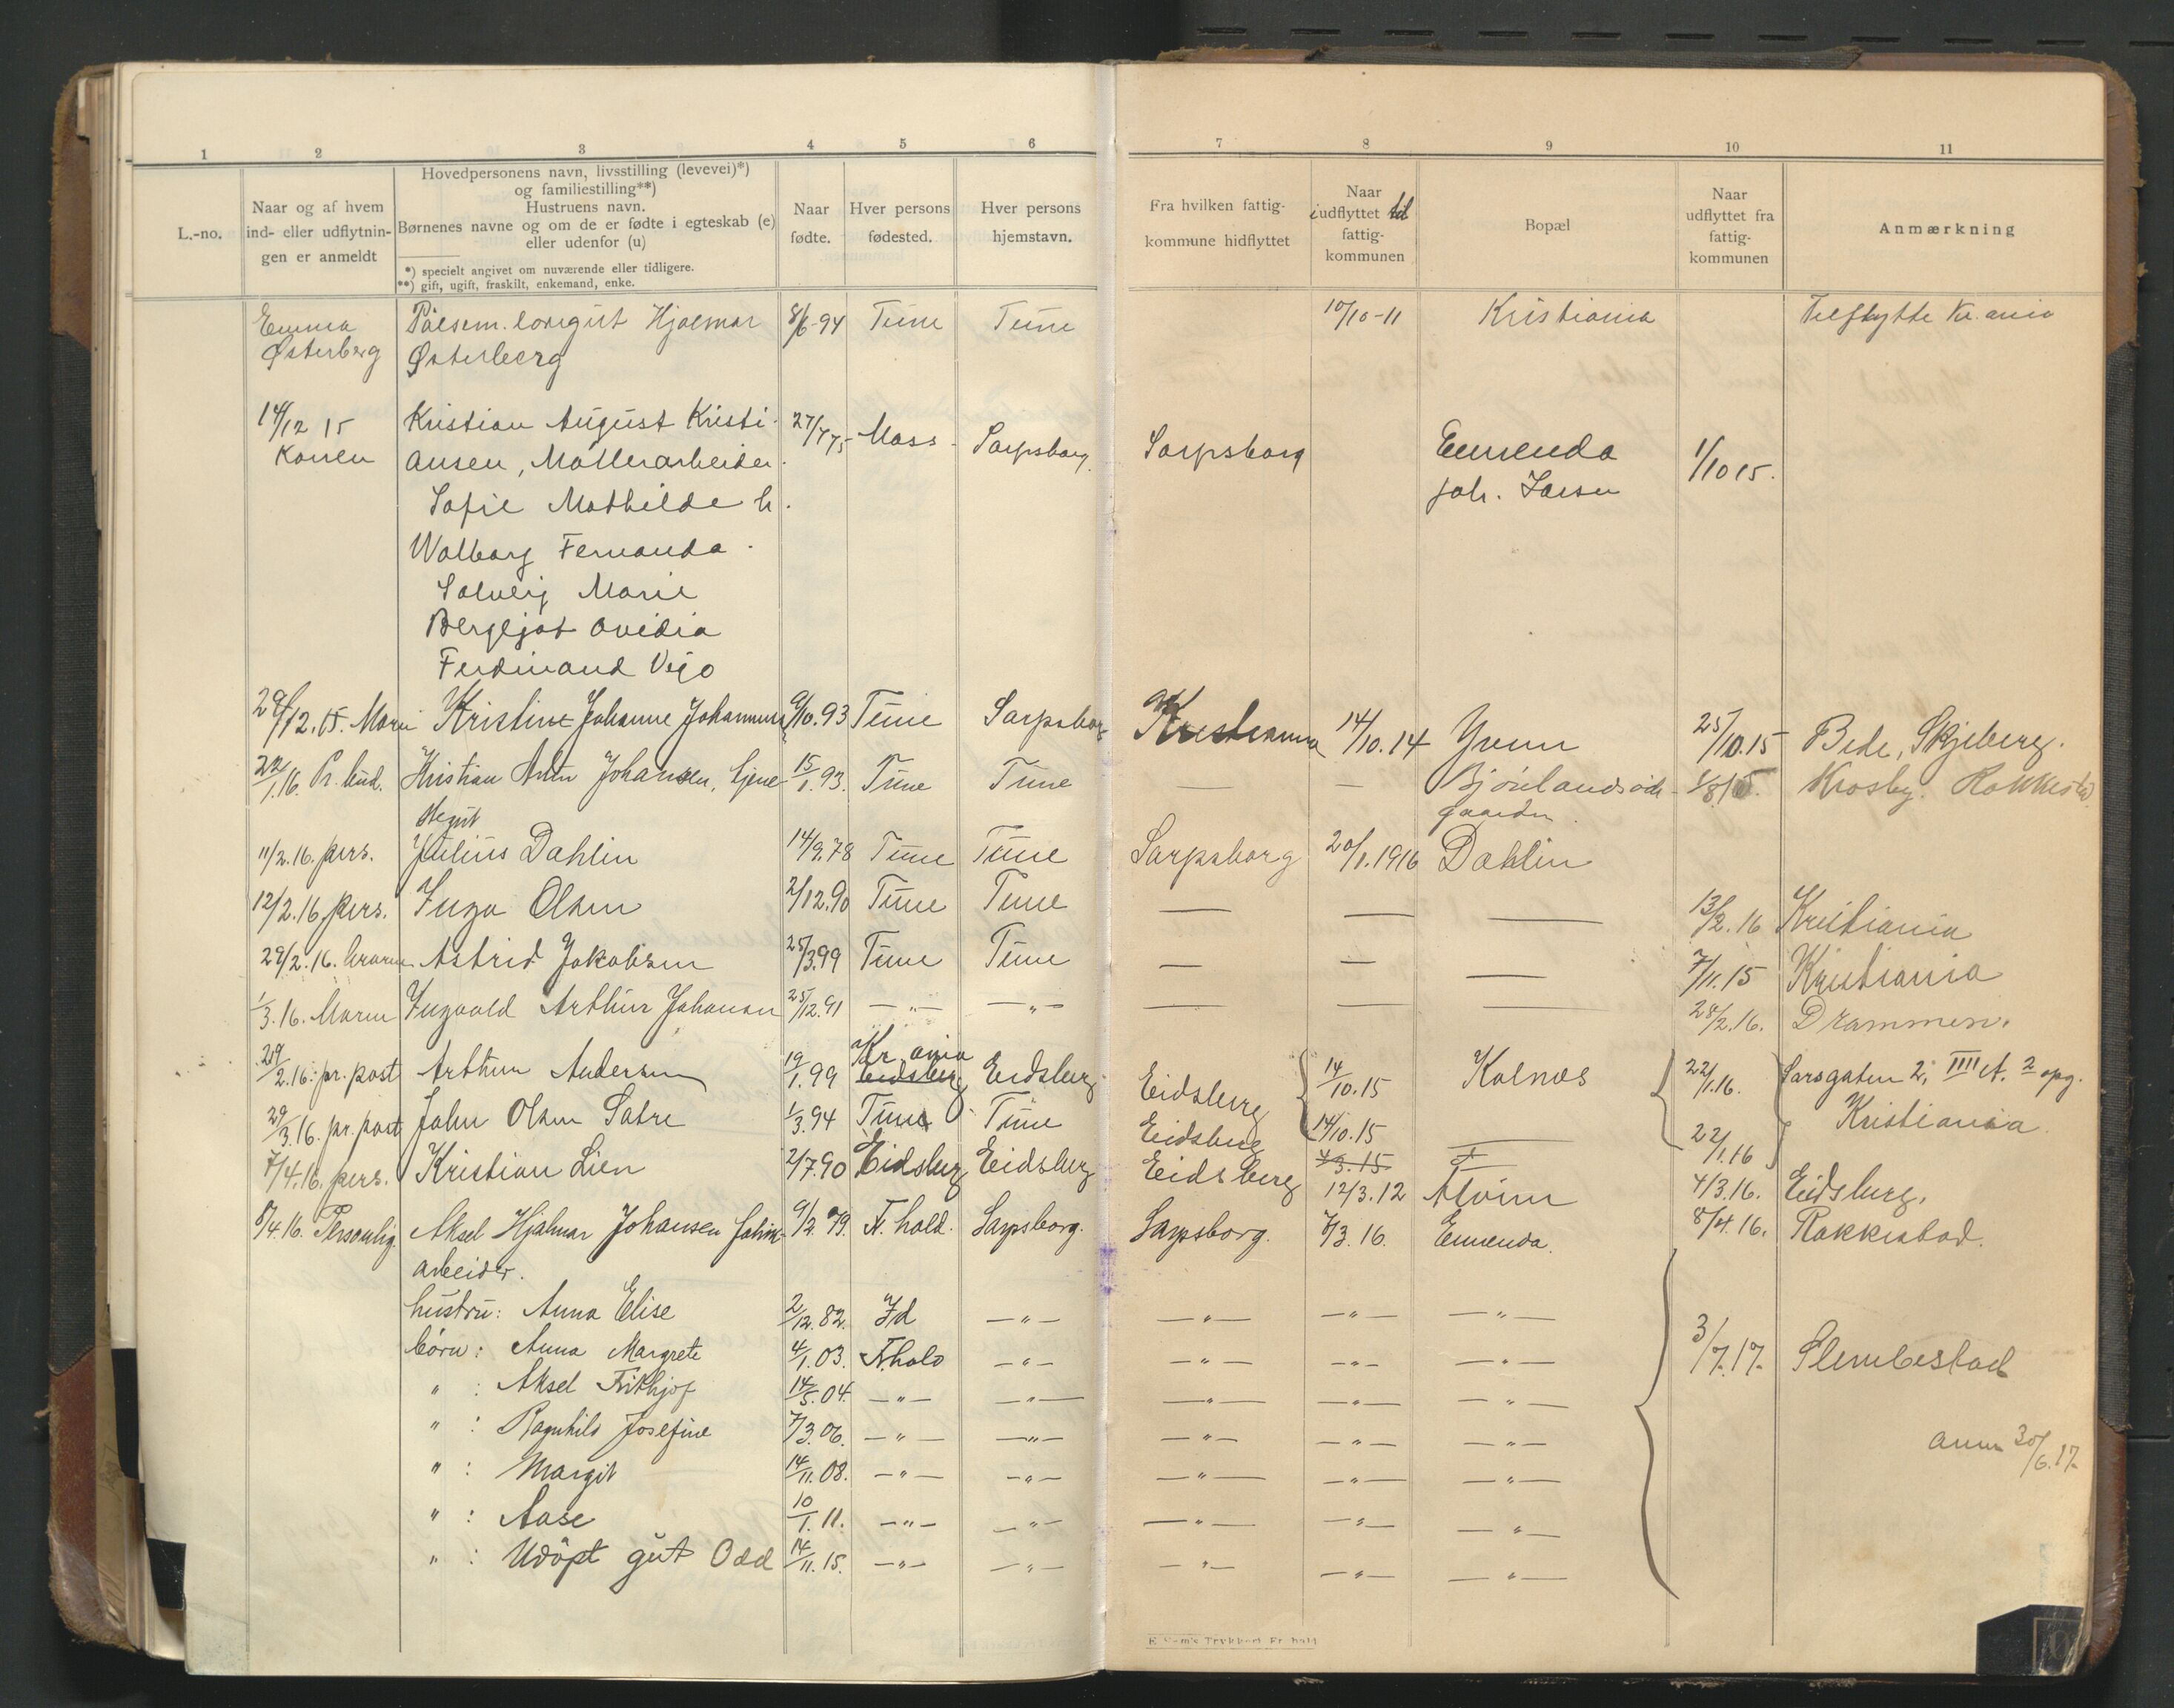 1 2 3 4 5 6 7 8 9 10 11
L.-no.
Naar og af hvem
ind- eller udflytnin-
gen er anmeldt
Hovedpersonens navn, livsstilling (levevei)*)
og familiestilling**)
Hustruens navn.
Børnenes navne og om de er fødte i egteskab (e)
eller udenfor (u)
*) specielt angivet om nuværende eller tidligere.
**) gift, ugift, fraskilt, enkemand, enke.
Naar
fødte.
Hver persons
fødested.
Hver persons
hjemstavn.
Fra hvilken fattig-
kommune hidflyttet
Naar
iudflyttet til
fattig-
kommunen
Bopæl
Naar
udflyttet fra
fattig-
kommunen
Anmærkning
Emma Hjalmar 8/6-94 Tune Tune 10/10-11 Kristiania
Østerberg Østerberg
14/12 15 Kristian August Kristi- 27/7 75 Moss Sarpsborg Sarpsborg Ennenda 1/10 15.
Konen ansen, Møllerarbeider. Joh.
Sofie Mathilde h.
Walborg Fernanda
Solveig Marie
Bergljot Ovidia
Ferdinand Vigo
29/12.15. Kristine Johanne Johannesen 9/10.93 Tune Sarpsborg Kristiania 14/10.14 Yven 25/10.15 Bede, Skjeberg.
22/1.16. Pr. bud. Kristian Anton Johansen, tjene- 15/1.93. Tune Tune — — Krosby. Rakkestad
stegut gaarden.
11/2.16. pers. Julius Dahlin 14/9.78 Tune Tune Sarpsborg 20/1.1916 Dahlin
12/2.16. pers. Inga Olsen 2/12.90 Tune Tune — — — 13/2.16 Kristiania
29/2.16. Astrid Jakobsen 25/3.99 Tune Tune — — — 7/11.15 Kristiania
1/3.16. Moren Ingvald Arthur Johansen 25/12.91 —"— —"— — — — 28/2.16. Drammen.
29/2.16. pr. post Arthur Andersen 19/1.99 Kr.ania Eidsberg Eidsberg Eidsberg 14/10.15 Kalnes 22/1.16. Sarsgaten 2, IIII et. 2 opg.
29/3.16. pr. post John Olsen Sætre 1/3.94 Tune Tune Eidsberg 14/10.15 — 22/1.16 Kristiania.
7/4.16. pers. Kristian Lien 2/7.90 Eidsberg Eidsberg Eidsberg 4/3.15 12/3.12 Alvim 4/3.16. Eidsberg.
8/4.16. Personlig. Aksel Hjalmar Johansen Fabrik- 9/2.79. F.hald. Sarpsborg. Sarpsborg. 7/3.16. Ennenda. 8/4.16. Rakkestad.
arbeider.
hustru: Anna Elise 2/12.82. Id —"— —"— —"— —"—
børn: Anna Margrete 4/1.03. F.hald —"— —"— —"— —"— 3/7.17. Slembestad
" : Aksel Frithjof 14/5.04. —"— —"— —"— —"— —"—
" : Ragnhild Josefine 7/3.06. —"— —"— —"— —"— —"— anm 30/6.17.
" : Margit 14/11.08. —"— —"— —"— —"— —"—
" : Aase 10/1.11. —"— —"— —"— —"— —"—
" : Udøpt gut Odd 14/11.15. —"— —"— —"— —"— —"—